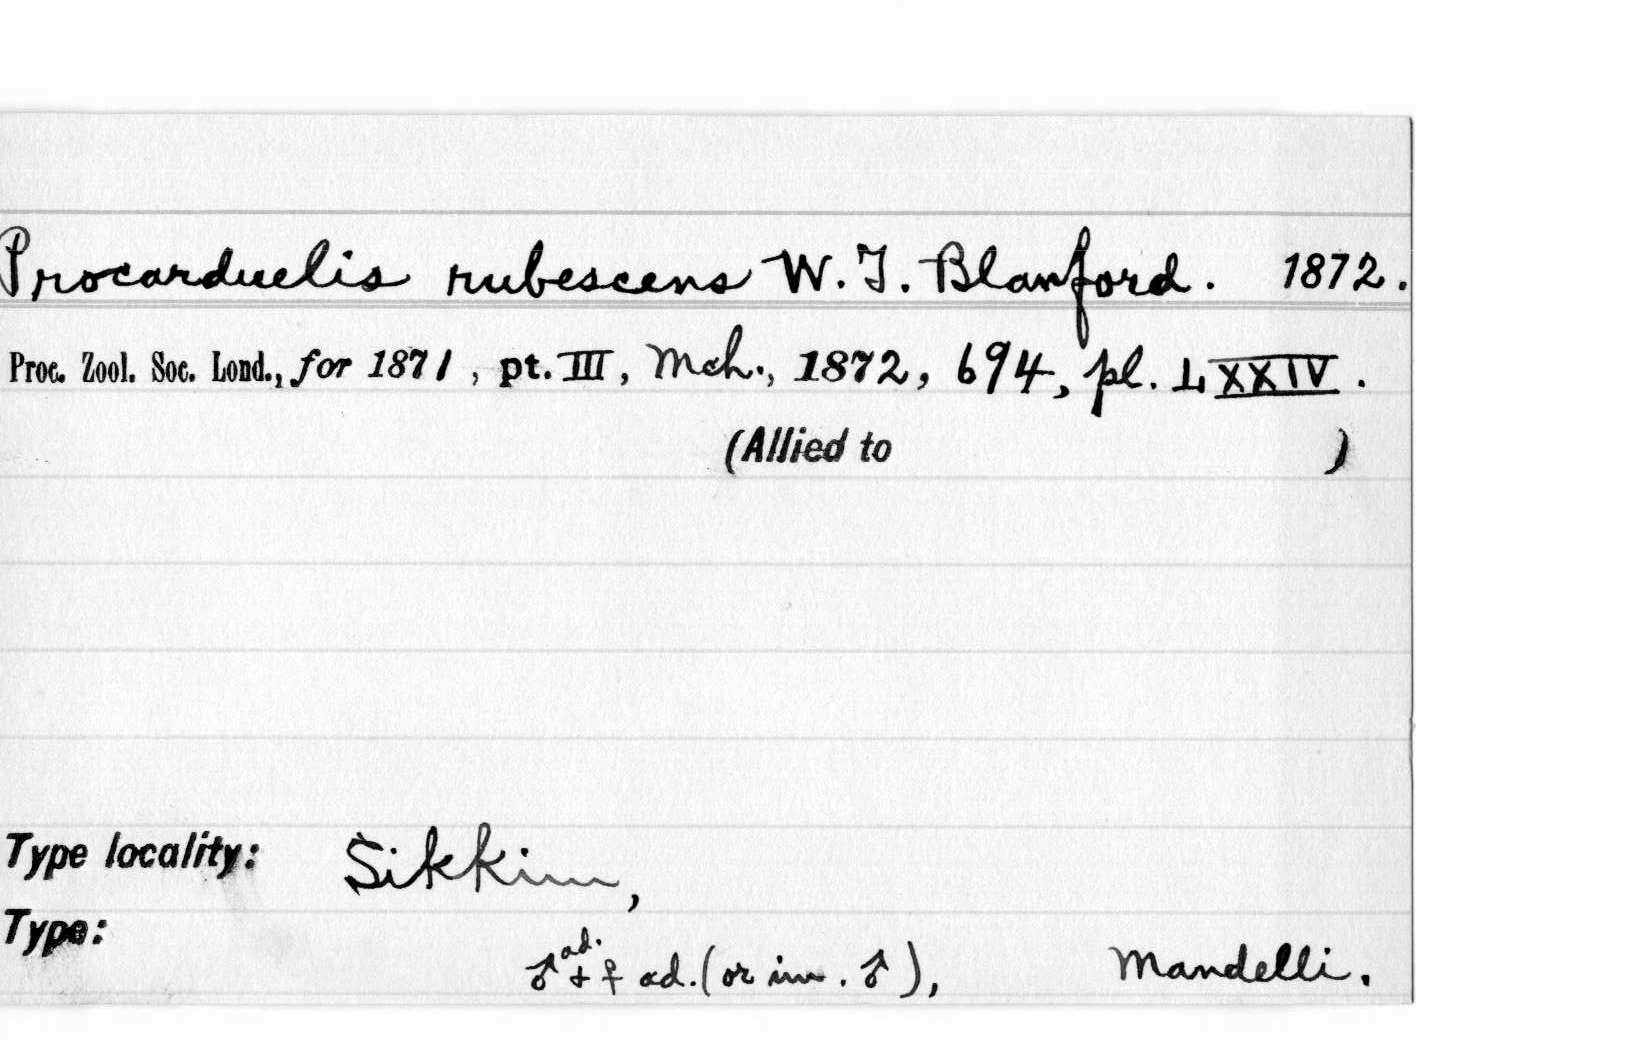 Procarduelis rubescens W. T. Blanford. 1872.
Proc. Zool. Soc. Lond., for 1871, pt. III, Mch., 1872, 694, pl. LXXIV.
(Allied to )
Type locality: Sikkim,
Type:
♂ ad. + ♀ ad. (or im. ♂), Mandelli.